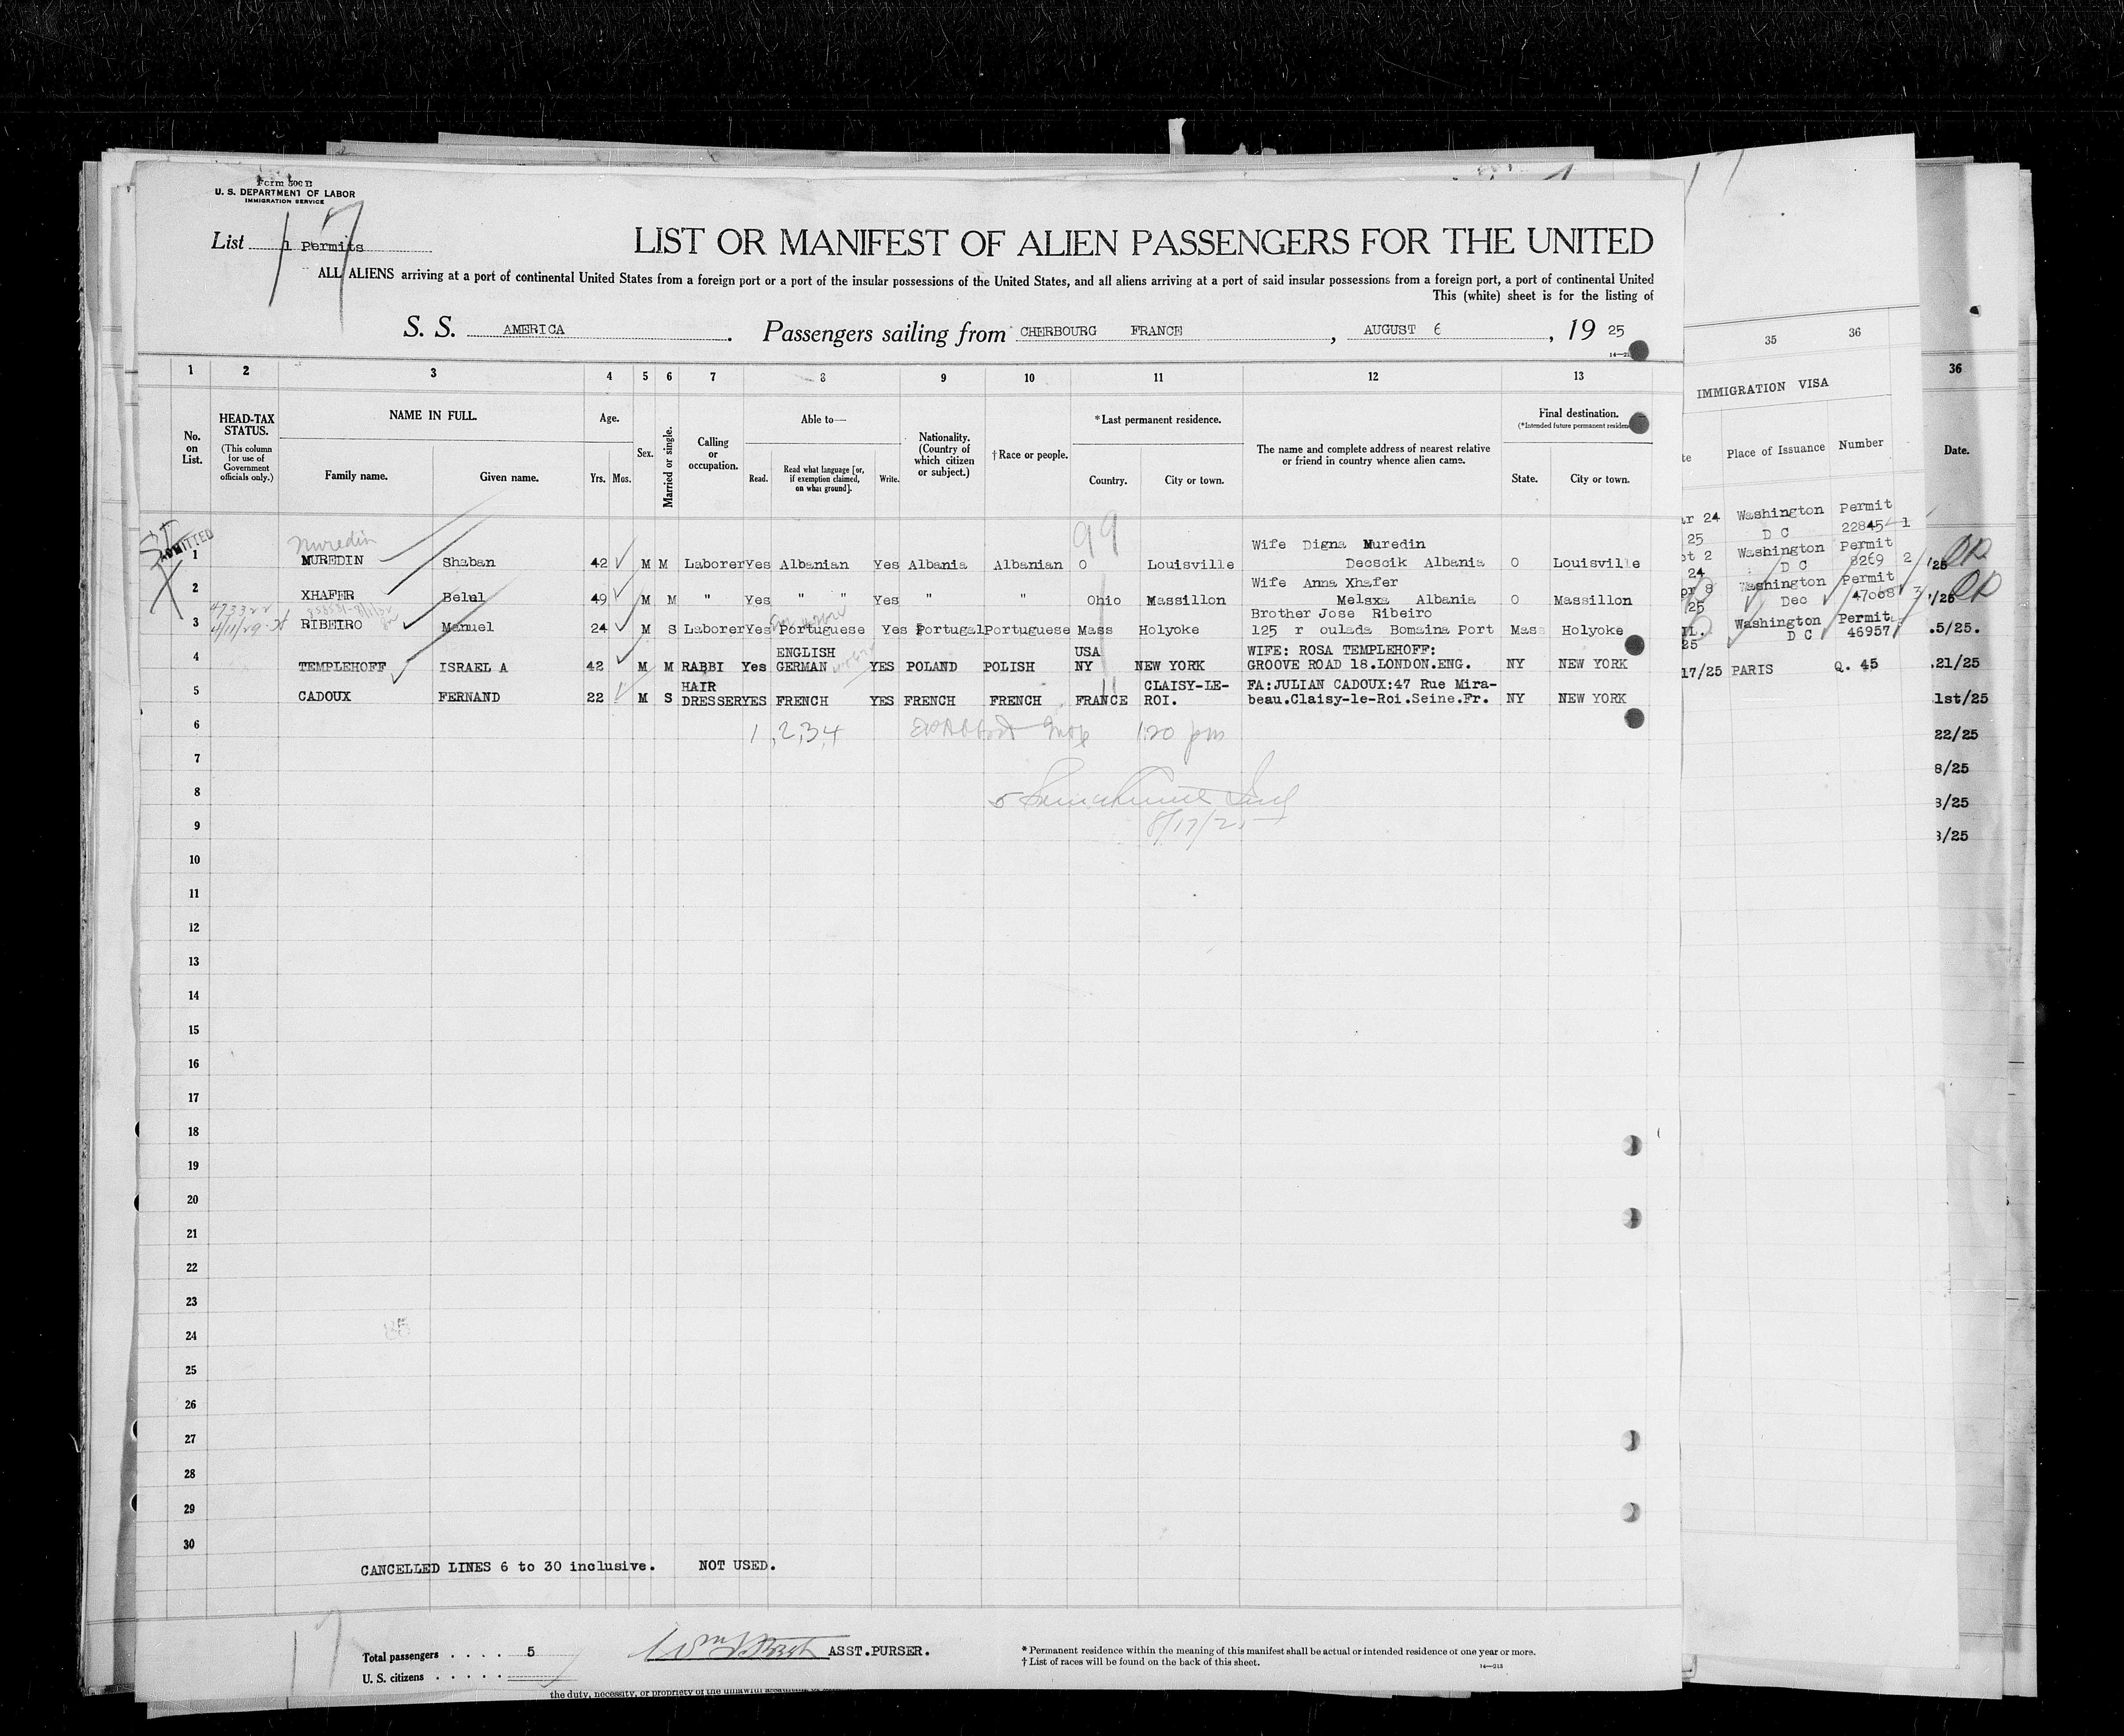 Form 500 B
U. S. DEPARTMENT OF LABOR
IMMIGRATION SERVICE
17
List 1 Permits
LIST OR MANIFEST OF ALIEN PASSENGERS FOR THE UNITED
ALL ALIENS arriving at a port of continental United States from a foreign port or a port of the insular possessions of the United States, and all aliens arriving at a port of said insular possessions from a foreign port, a port of continental United
This (white) sheet is for the listing of
S. S. AMERICA. Passengers sailing from CHERBOURG FRANCE, AUGUST 6, 19 25
1 2 3 4 5 6 7 8 9 10 11 12 13
No. on List.
HEAD-TAX STATUS.
(This column for use of Government officials only.)
NAME IN FULL.
Family name. Given name.
Age.
Yrs. Mos.
Sex.
Married or single.
Calling or occupation.
Able to—
Read. Read what language [or, if exemption claimed, on what ground]. Write.
Nationality. (Country of which citizen or subject.)
†Race or people.
*Last permanent residence.
Country. City or town.
The name and complete address of nearest relative or friend in country whence alien came.
Final destination.
(*Intended future permanent residen
State. City or town.
35 36
IMMIGRATION VISA
te Place of Issuance Number
36
Date.
ADMITTED
Nuredin
99
1 MUREDIN Shaban 42 M M Laborer Yes Albanian Yes Albania Albanian O Louisville Wife Digna Muredin
Decscik Albania O Louisville
2 XHAFER Belul 49 M M " Yes " " Yes " " Ohio Massillon Wife Anna Xhafer
Melsxa Albania O Massillon
3 RIBEIRO Manuel 24 M S Laborer Yes Portuguese Yes Portugal Portuguese Mass Holyoke Brother Jose Ribeiro
125 r oulada Bomaina Port Mass Holyoke
4 TEMPLEHOFF ISRAEL A 42 M M RABBI Yes ENGLISH GERMAN YES POLAND POLISH USA NY NEW YORK WIFE: ROSA TEMPLEHOFF:
GROOVE ROAD 18.LONDON.ENG. NY NEW YORK
5 CADOUX FERNAND 22 M S HAIR DRESSER YES FRENCH YES FRENCH FRENCH FRANCE CLAISY-LE-ROI. FA:JULIAN CADOUX:47 Rue Mira-
beau.Claisy-le-Roi.Seine.Fr. NY NEW YORK
ar 24 Washington Permit
25 D C 22845 1
ct 2 Washington Permit
24 D C 8269 2
pr 8 Washington Permit
/25 Dec 47068 3
IL. Washington Permit
25 D C 46957
17/25 PARIS Q. 45
/25
/25
.5/25.
.21/25
1st/25
22/25
8/25
3/25
3/25
6
1,2,3,4
1.20 pm
7
8
9
8/17/25
10
11
12
13
14
15
16
17
18
19
20
21
22
23
24
25
26
27
28
29
30
CANCELLED LINES 6 to 30 inclusive. NOT USED.
17
Total passengers . . . . 5
ASST.PURSER.
U. S. citizens . . . . .
* Permanent residence within the meaning of this manifest shall be actual or intended residence of one year or more.
† List of races will be found on the back of this sheet.
14—213